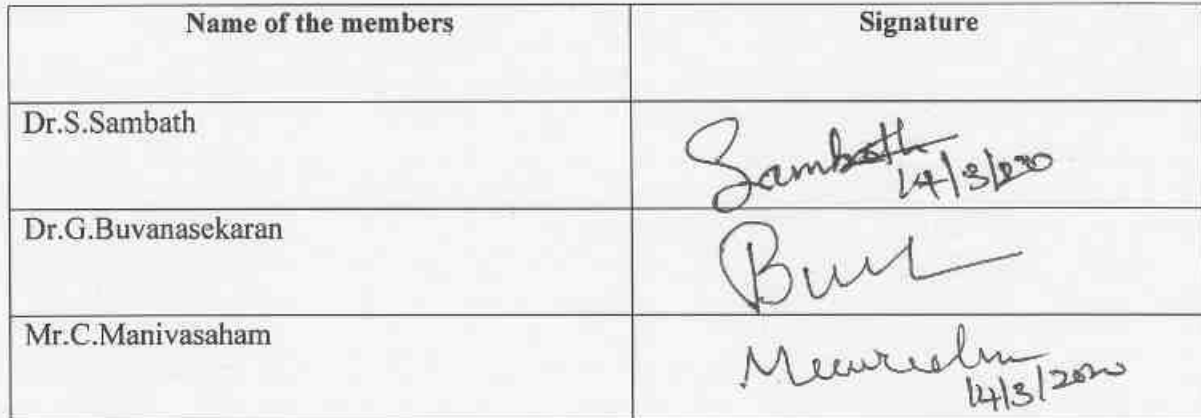 Name of the members Signature
Dr.S.Sambath Sambath
14/3/2020
Dr.G.Buvanasekaran
Mr.C.Manivasaham
14/3/2020